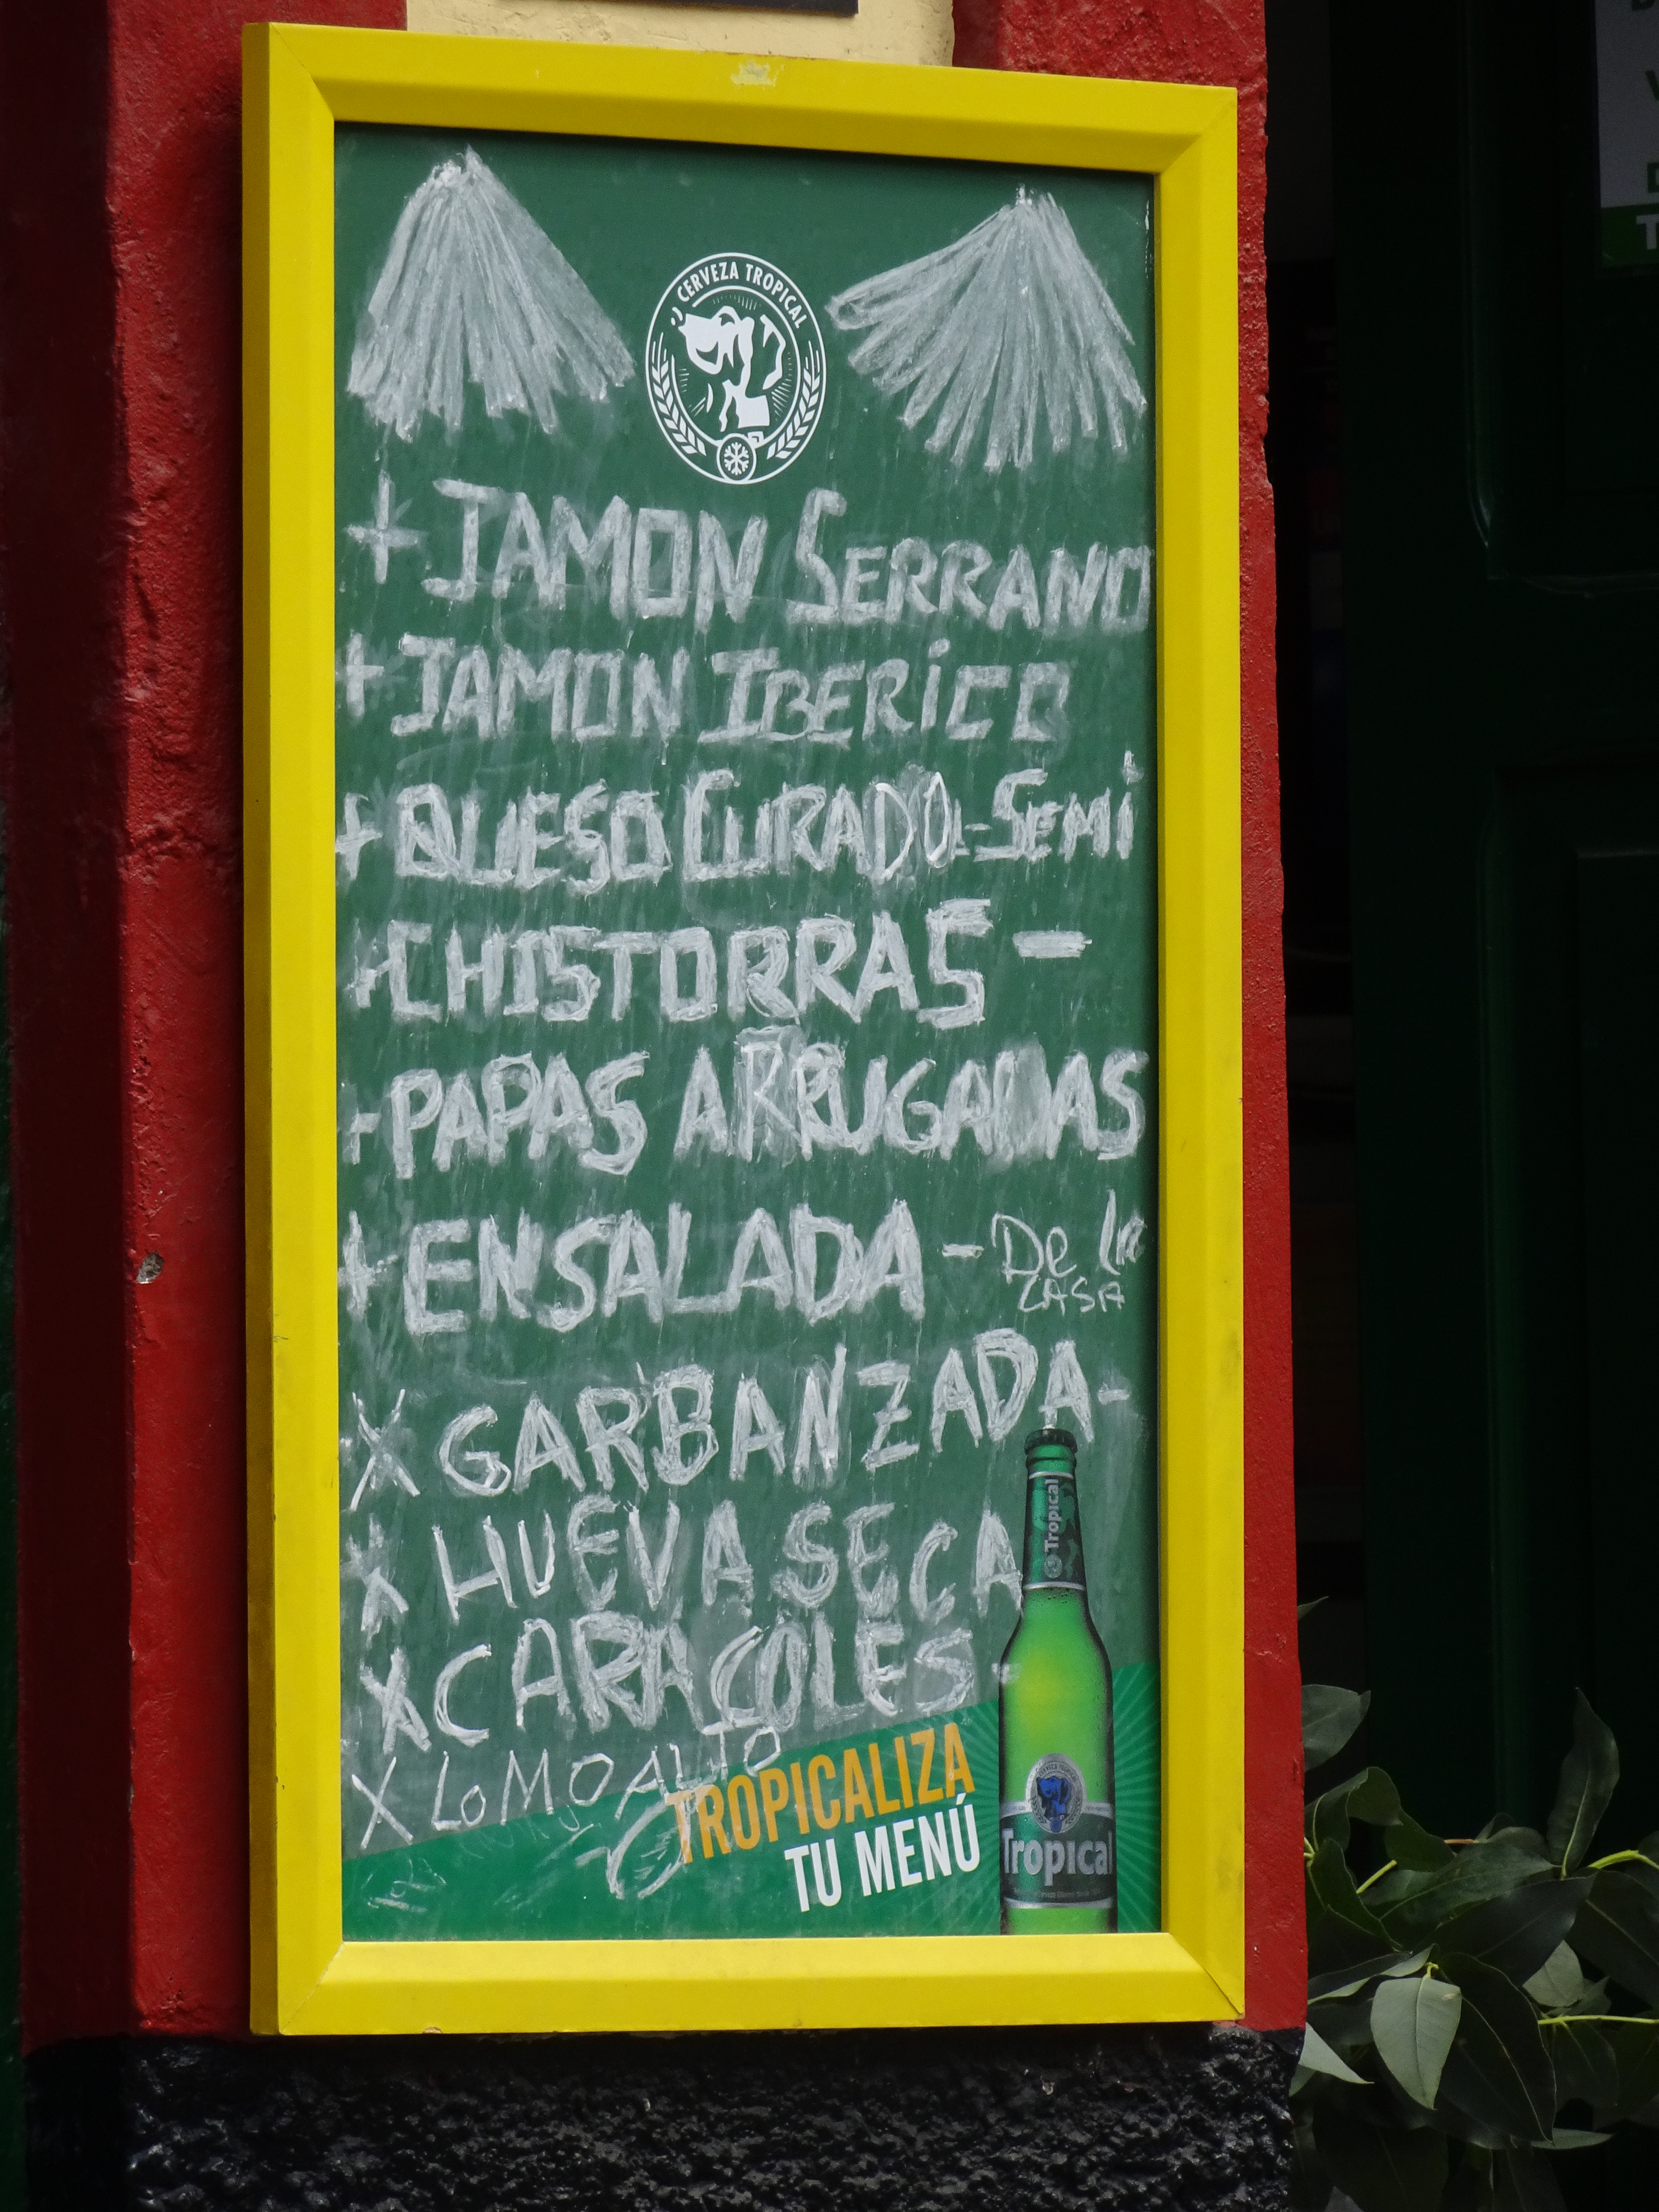 CERVEZA TROPICAL
+ JAMON SERRANO
+ JAMON IBERiCO
+ QUESO CURADO-SEMi
+ CHISTORRAS -
+ PAPAS ARRUGADAS
+ ENSALADA - De la
CASA
X GARBANZADA-
X HUEVA SECA
X CARACOLES -
X LOMO ALTO
TROPICALIZA
TU MENÚ
Tropical
Tropical